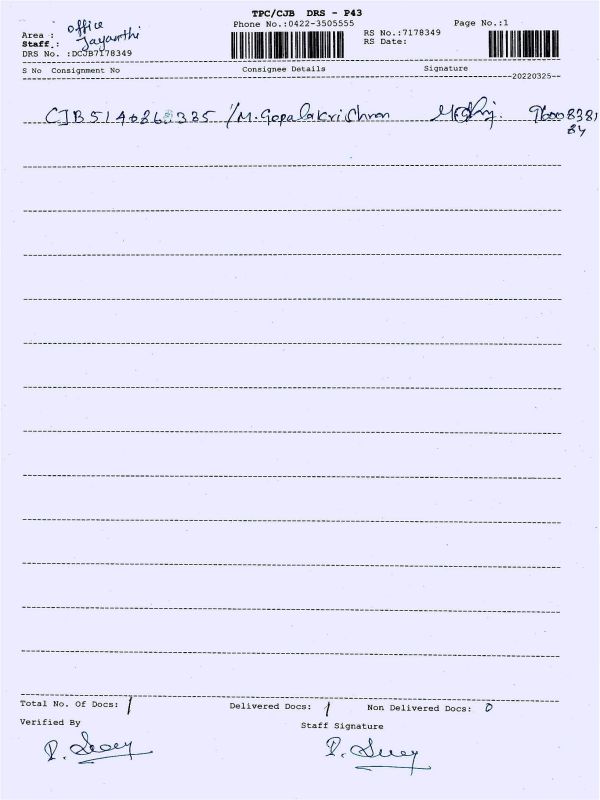 TPC/CJB DRS - P43
Phone No.:0422-3505555
Page No.:1
Area : Office
RS No.:7178349
Staff : Jayanthi
RS Date:
DRS No. :DCJB7178349
S No Consignment No Consignee Details Signature
--20220325--
CJB 514086 335 / M. Gopalakrichnan 96008381
84
Total No. Of Docs: 1 Delivered Docs: 1 Non Delivered Docs: 0
Verified By Staff Signature